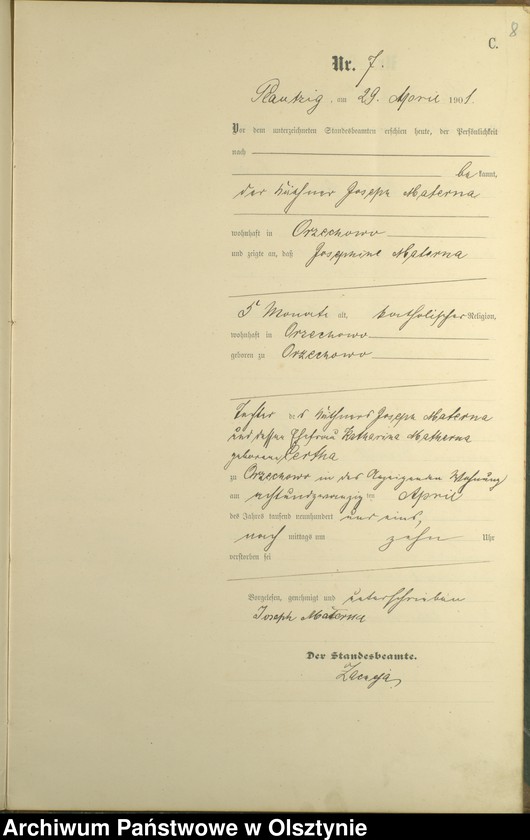 8
C.
Nr. 7.
Plautzig, am 29. April 1901.
Vor dem unterzeichneten Standesbeamten erschien heute, der Persönlichkeit
nach
bekannt,
der Käthner Joseph Materna
wohnhaft in Orzechowo
und zeigte an, daß Josephine Materna
5 Monate alt, katholischer Religion,
wohnhaft in Orzechowo
geboren zu Orzechowo
Tochter des Käthners Joseph Materna
und dessen Ehefrau Katharina Matherna
geborenen
zu Orzechowo in des Anzeigenden Wohnung
am achtundzwanzigten April
des Jahres tausend neunhundert und eins,
nachmittags um zehn Uhr
verstorben sei
Vorgelesen, genehmigt und unterschrieben
Joseph Materna
Der Standesbeamte.
Archiwum Państwowe w Olsztynie